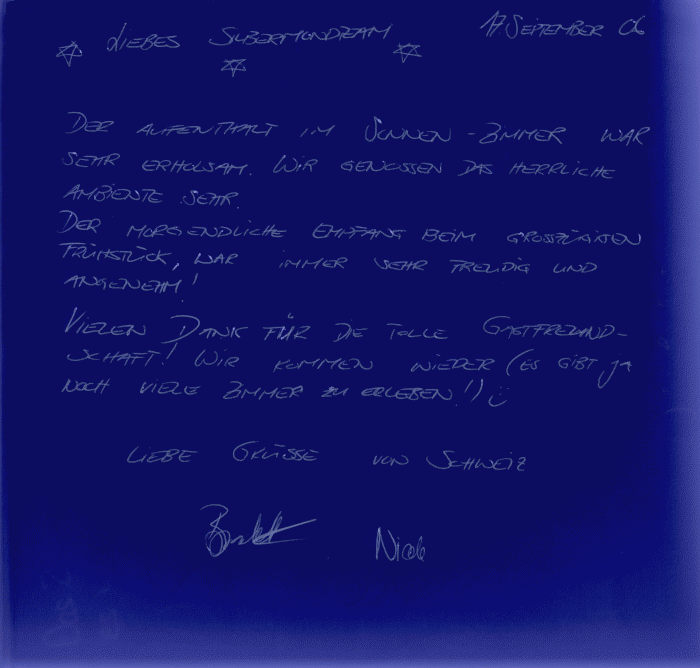 17. September 06
Liebes Silbermondteam
Der Aufenthalt im Sonnen-Zimmer war
sehr erholsam. Wir genossen das herrliche
Ambiente sehr.
Der morgendliche Empfang beim grosszügigen
Frühstück, war immer sehr freudig und
angenehm!
Vielen Dank für die tolle Gastfreund-
schaft! Wir kommen wieder (es gibt ja
noch viele Zimmer zu erleben!)
Liebe Grüsse von Schweiz
Nicole